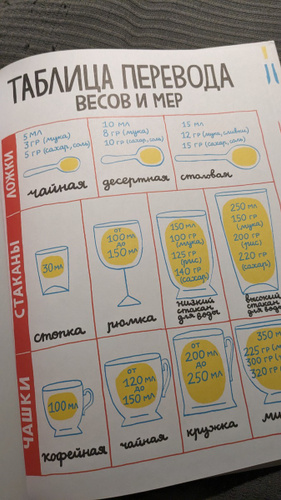 ТАБЛИЦА ПЕРЕВОДА
ВЕСОВ И МЕР
ЛОЖКИ
5 МЛ
3 ГР (мука)
5 ГР (сахар, соль)
чайная
10 МЛ
8 ГР (мука)
10 ГР (сахар, соль)
десертная
15 МЛ
12 ГР (мука, сливки)
15 ГР (сахар, соль)
столовая
СТАКАНЫ
30 МЛ
стопка
ОТ
100 МЛ
ДО
150 МЛ
рюмка
150 МЛ
100 ГР
(мука)
125 ГР
(рис)
140 ГР
(сахар)
низкий
стакан
для воды
250 МЛ
150 ГР
(мука)
200 ГР
(рис)
220 ГР
(сахар)
высокий
стакан
для воды
ЧАШКИ
100 МЛ
кофейная
ОТ
120 МЛ
ДО
150 МЛ
чайная
ОТ
200 МЛ
ДО
250 МЛ
кружка
350 М
225 ГР (м
300 ГР (
320 ГР (
ми